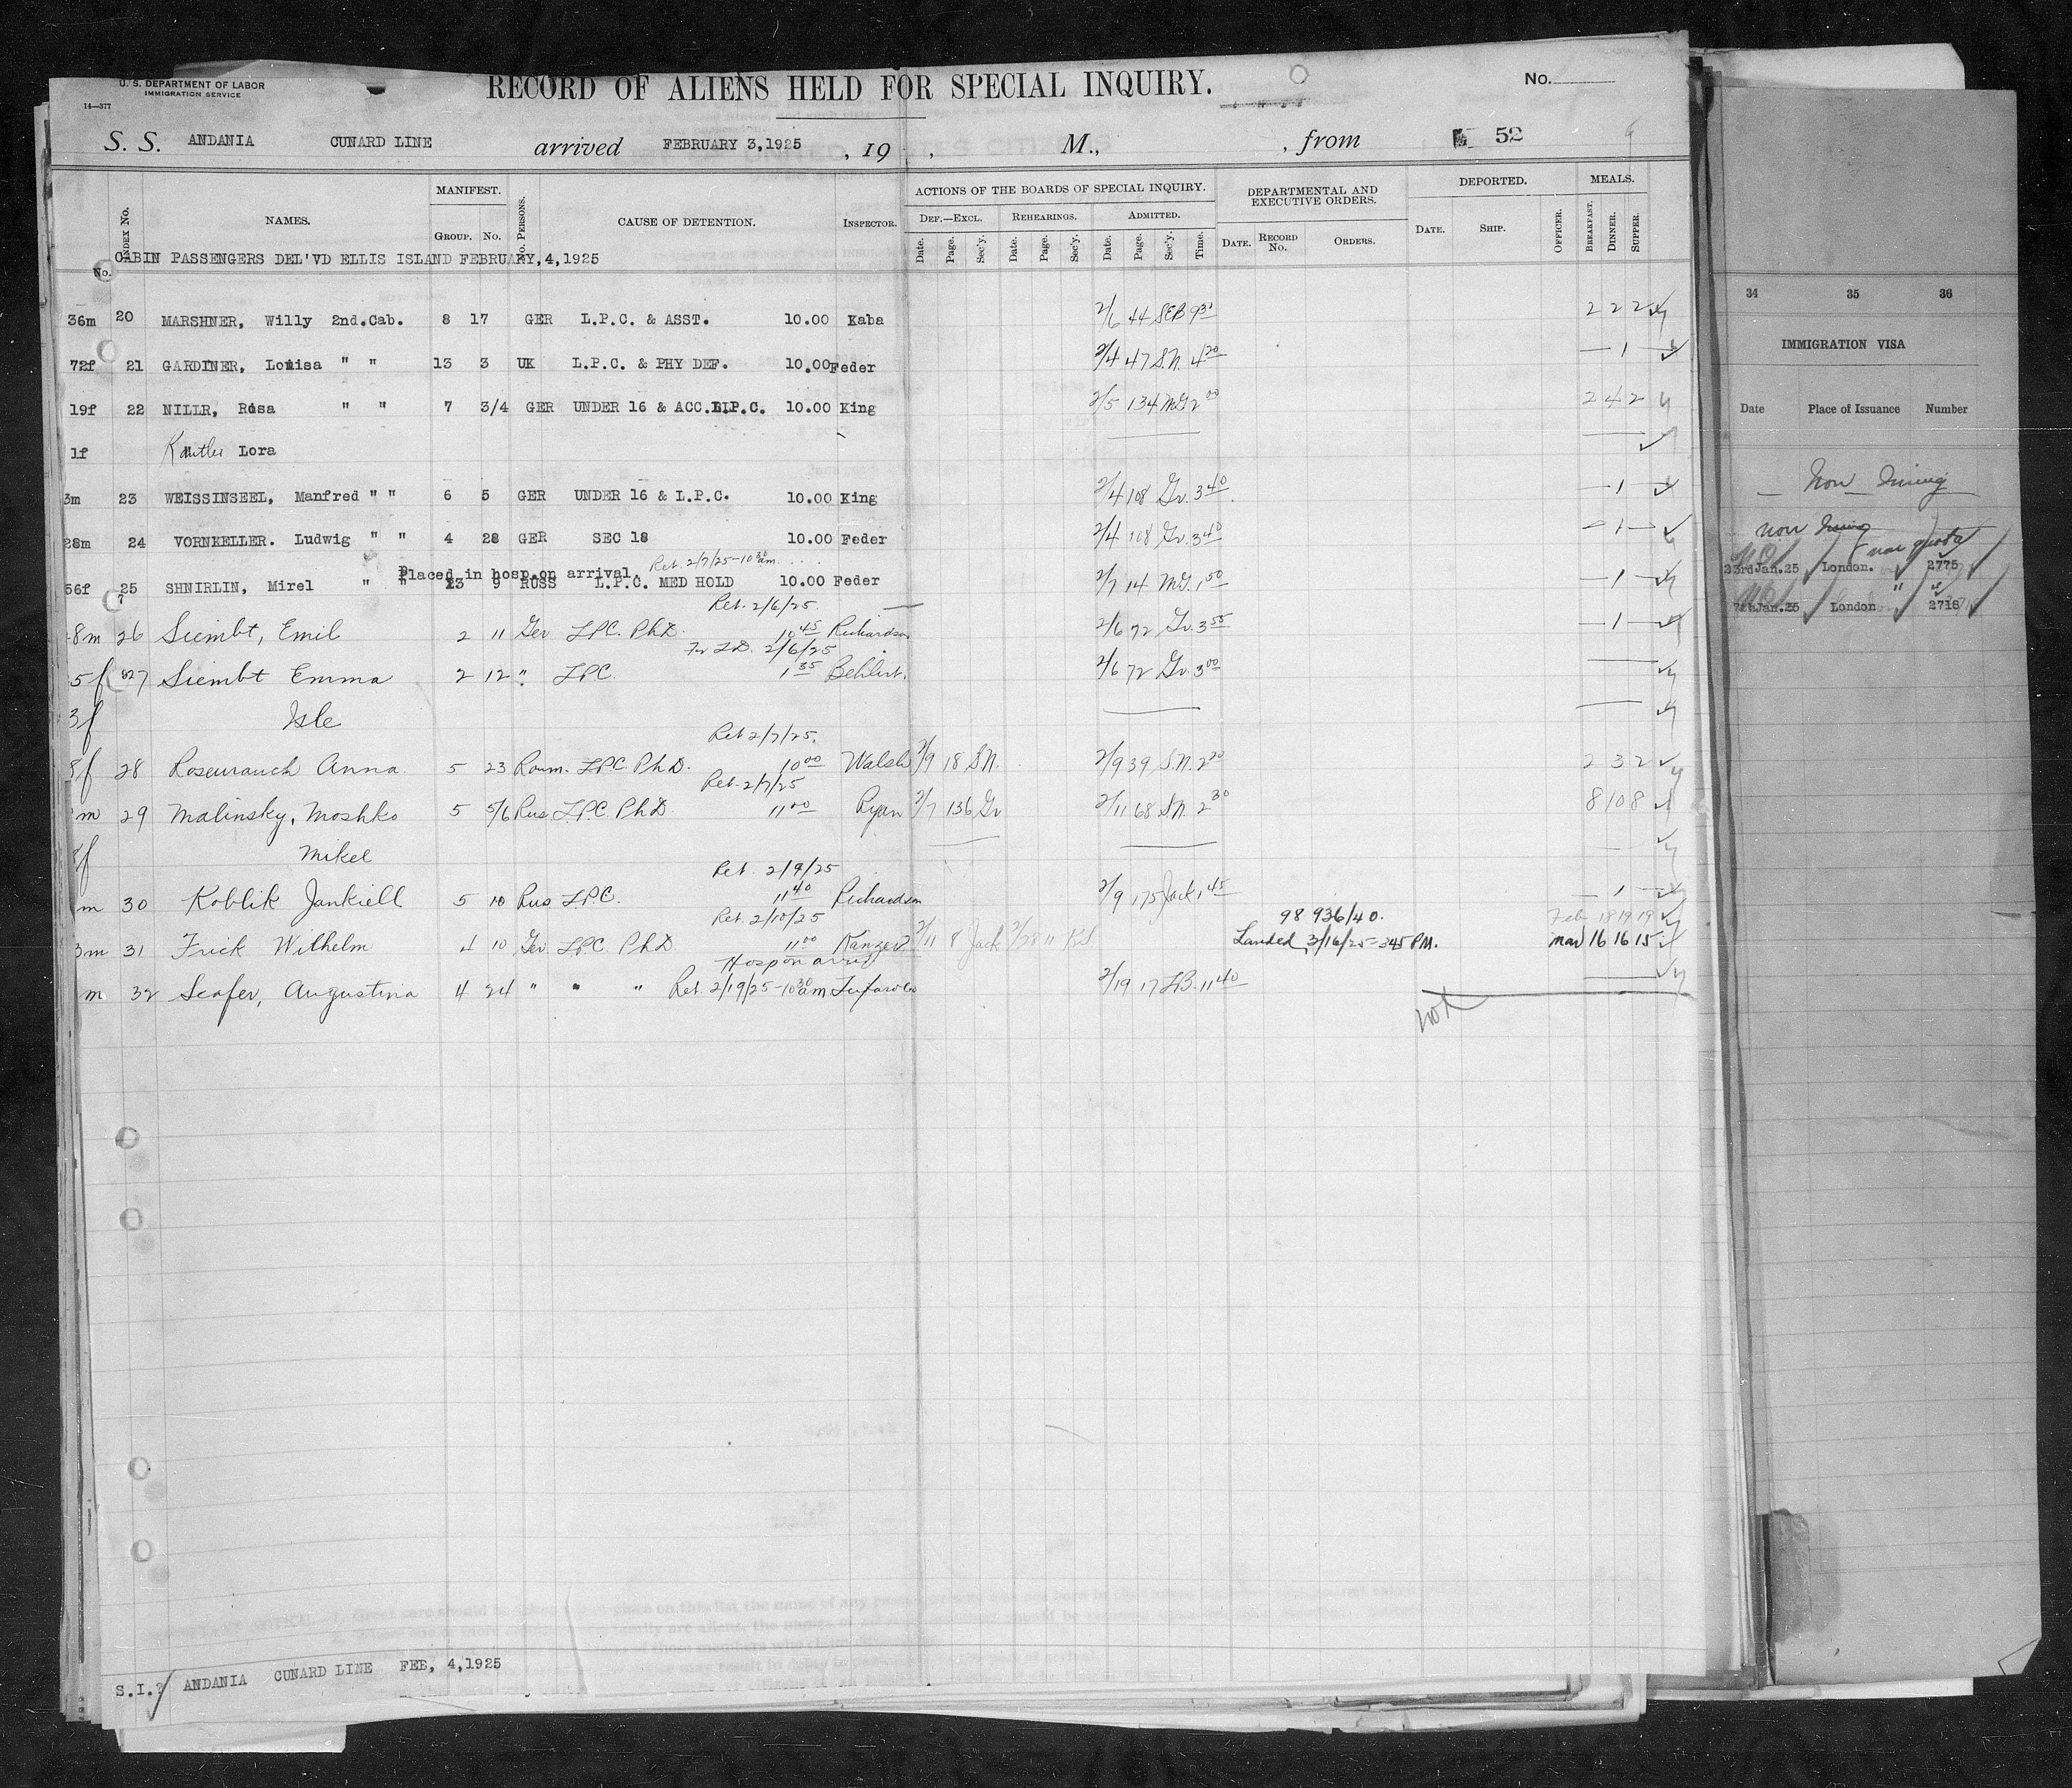 U. S. DEPARTMENT OF LABOR
IMMIGRATION SERVICE
14—377
RECORD OF ALIENS HELD FOR SPECIAL INQUIRY.
No.
S. S. ANDANIA CUNARD LINE arrived FEBRUARY 3,1925 , 19 , M., , from 52
INDEX No. NAMES. MANIFEST. GROUP. No. No. PERSONS. CAUSE OF DETENTION. INSPECTOR. ACTIONS OF THE BOARDS OF SPECIAL INQUIRY. DEF.—EXCL. REHEARINGS. ADMITTED. Date. Page. Sec'y. Date. Page. Sec'y. Date. Page. Sec'y. Time. DEPARTMENTAL AND EXECUTIVE ORDERS. DATE. RECORD No. ORDERS. DEPORTED. DATE. SHIP. OFFICER. MEALS. BREAKFAST. DINNER. SUPPER.
No. CABIN PASSENGERS DEL'VD ELLIS ISLAND FEBRUARY,4,1925
36m 20 MARSHNER, Willy 2nd.Cab. 8 17 GER L.P.C. & ASST. 10.00 Kaba 2/6 44 SEB 9 2 2 2
72f 21 GARDINER, Louisa " " 13 3 UK L.P.C. & PHY DEF. 10.00 Feder 2/4 47 S.N. 4 20 — 1 —
19f 22 NILLR, Rosa " " 7 3/4 GER UNDER 16 & ACC. L.P.C. 10.00 King 2/5 134 MG 2 00 2 4 2
1f Lora
3m 23 WEISSINSEEL, Manfred " " 6 5 GER UNDER 16 & L.P.C. 10.00 King 2/4 108 Gr. 3 40 — 1 —
28m 24 VORNKELLER. Ludwig " " 4 28 GER SEC 18 10.00 Feder 2/4 108 Gr. 3 40 — 1 —
Placed in hosp on arrival. Ret. 2/7/25-10 30 am
56f 25 SHNIRLIN, Mirel " " 13 9 RUSS L.P.C. MED HOLD 10.00 Feder 2/7 14 MG. 1 50 — 1 —
Ret. 2/6/25.
8m 26 Siembt, Emil 2 11 Ger L.P.C. Ph.D. 10 45 Richardson 2/6 72 Gr. 3 55 — 1 —
2/6/25
5f 27 Siembt Emma 2 12 " L.P.C. 1 35 2/6 72 Gr. 3 00
3f Isle
Ret 2/7/25.
8f 28 Rosenrauch Anna 5 23 Roum. L.P.C. Ph.D. 10 00 Walsh 2/9 18 S.N. 2/9 39 S.N. 2 20 2 3 2
Ret. 2/7/25
m 29 Malinsky, Moshko 5 5/6 Rus L.P.C. Ph.D. 11 00 Ryan 2/7 136 Gr 2/11 68 S.N. 2 30 8 10 8
f Mikel
Ret. 2/9/25
m 30 Koblik Jankiell 5 10 Rus L.P.C. 11 40 Richardson 2/9 175 Jack 1 45 — 1 —
Ret. 2/10/25 98 936/40. Feb 18 19 19
3m 31 Frick Wilhelm 4 10 Ger. L.P.C. Ph.D 11 00 2/11 8 Jack 2/28 11 KS Landed 3/16/25-345 PM. mar 16 16 15
Hosp on arriv
m 32 Seafer, Augustina 4 24 " " " Ret. 2/19/25-10 30 am 2/19 17 LB. 11 40
S.I. ANDANIA CUNARD LINE FEB, 4,1925
34 35 36
IMMIGRATION VISA
Date Place of Issuance Number
non
non quota
23rdJan.25 London. 2775
7thJan.25 London 2718